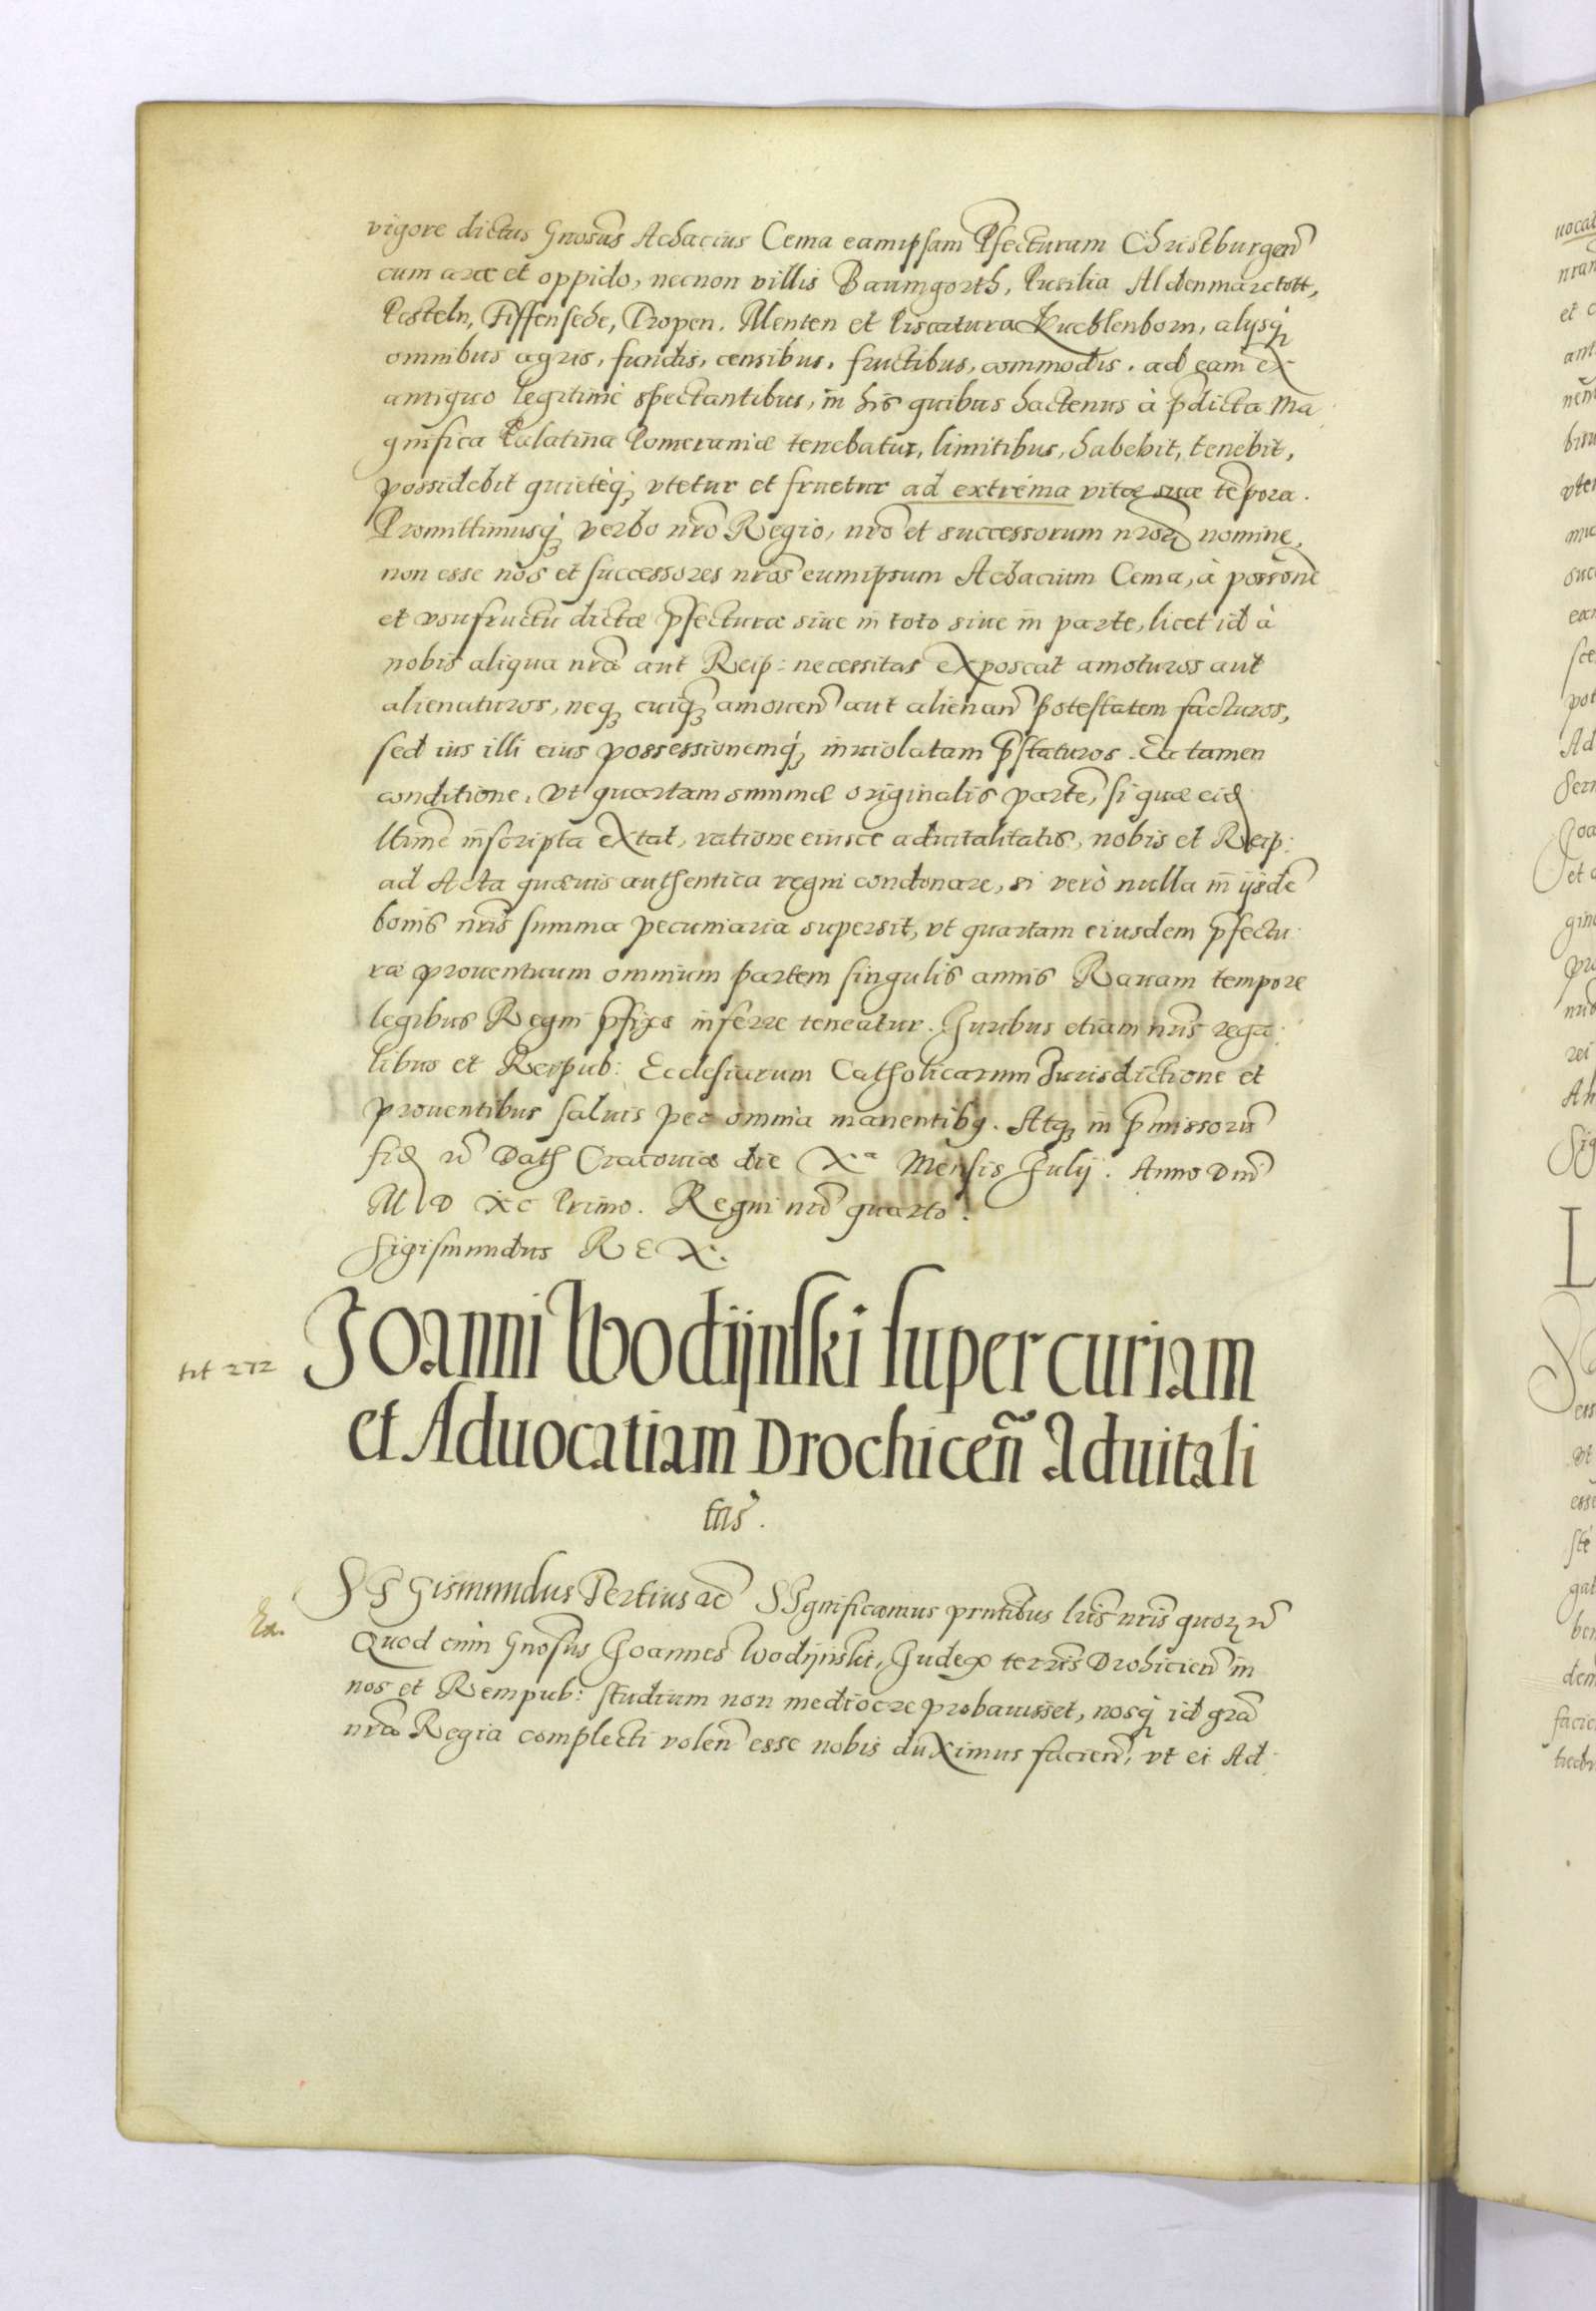 vigore dictus Gnosus Achacius Cema eamipsam Pfecturam Christburgeñ
cum arce et oppido, necnon villis Baumgorth, Pusilia Aldenmarctott,
Posteln, Tiffensehe, Propen. Menten et Piscatura Kucblenborn, alijsq́
omnibus agris, fundis, censibus, fructibus, commodis. ad eam ex
antiquo legitimè spectantibus, in his quibus hactenus à pdicta Ma
gnifica Palatina Pomeraniæ tenebatur, limitibus, habebit, tenebit,
possidebit quietèq́ vtetur et fruetur ad extréma vitæ suæ tēpora.
Promittimusq́ verbo nrō Regio, nrō et successorum nrōrū nomine,
non esse nōs et successores nrōs eumipsum Achacium Cema, à possione
et vsufructu dictæ pfecturæ siue in toto siue in parte, licet id à
nobis aliqua nrā aut Reip: necessitas exposcat amoturos aut
alienaturos, neq cuiq amouen aut alienan potestatem facturos,
sed ius illi eius possessionemq́ inuiolatam pstaturos. Ea tamen
conditione, vt quartam summæ originalis partē, si quæ eid
ltime inscripta extat, ratione eiusce aduitalitatis, nobis et Reip:
ad Acta quæuis authentica regni condonare, si verò nulla in ijsdē
bonis nris summa pecuniaria supersit, vt quartam eiusdem pfectu
ræ prouentuum omnium partem singulis annis Rauam tempore
legibus Regni pfixo inferre teneatur. Iuribus etiam nris rega
libus et Reipub: Ecclesiarum Catholicarum Jurisdictione et
prouentibus saluis per omnia manentibq. Atq in pmissorū
fid rē Dath Cracouiæ die Xa Mensis Julij. Anno Dni
M D XC Primo. Regni nrō quarto.
Sigismundus REX.
tit 272
Joanni Wodijnski super curiam
et Aduocatiam Drochiceñ Aduitali
tas.
Ea.
SIGismundus Tertius rē SIgnificamus pntibus lris nris quor rē
Quod cum Gnosus Joannes Wodijnski, Judex terris Drohicieñ in
nos et Rempub: studium non mediocre probauisset, nosq́ id grā
nrā Regia complecti voleñ esse nobis duximus facieñ, vt ei Ad